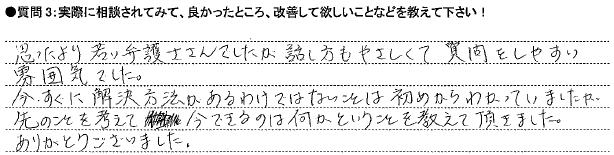 ●質問3:実際に相談されてみて、良かったところ、改善して欲しいことなどを教えて下さい!
思ったより若い弁護士さんでしたが話し方もやさしくて質問をしやすい
雰囲気でした。
今すぐに解決方法があるわけではないことは初めからわかっていましたが、
先のことを考えて今できるのは何かということを教えて頂きました。
ありがとうございました。